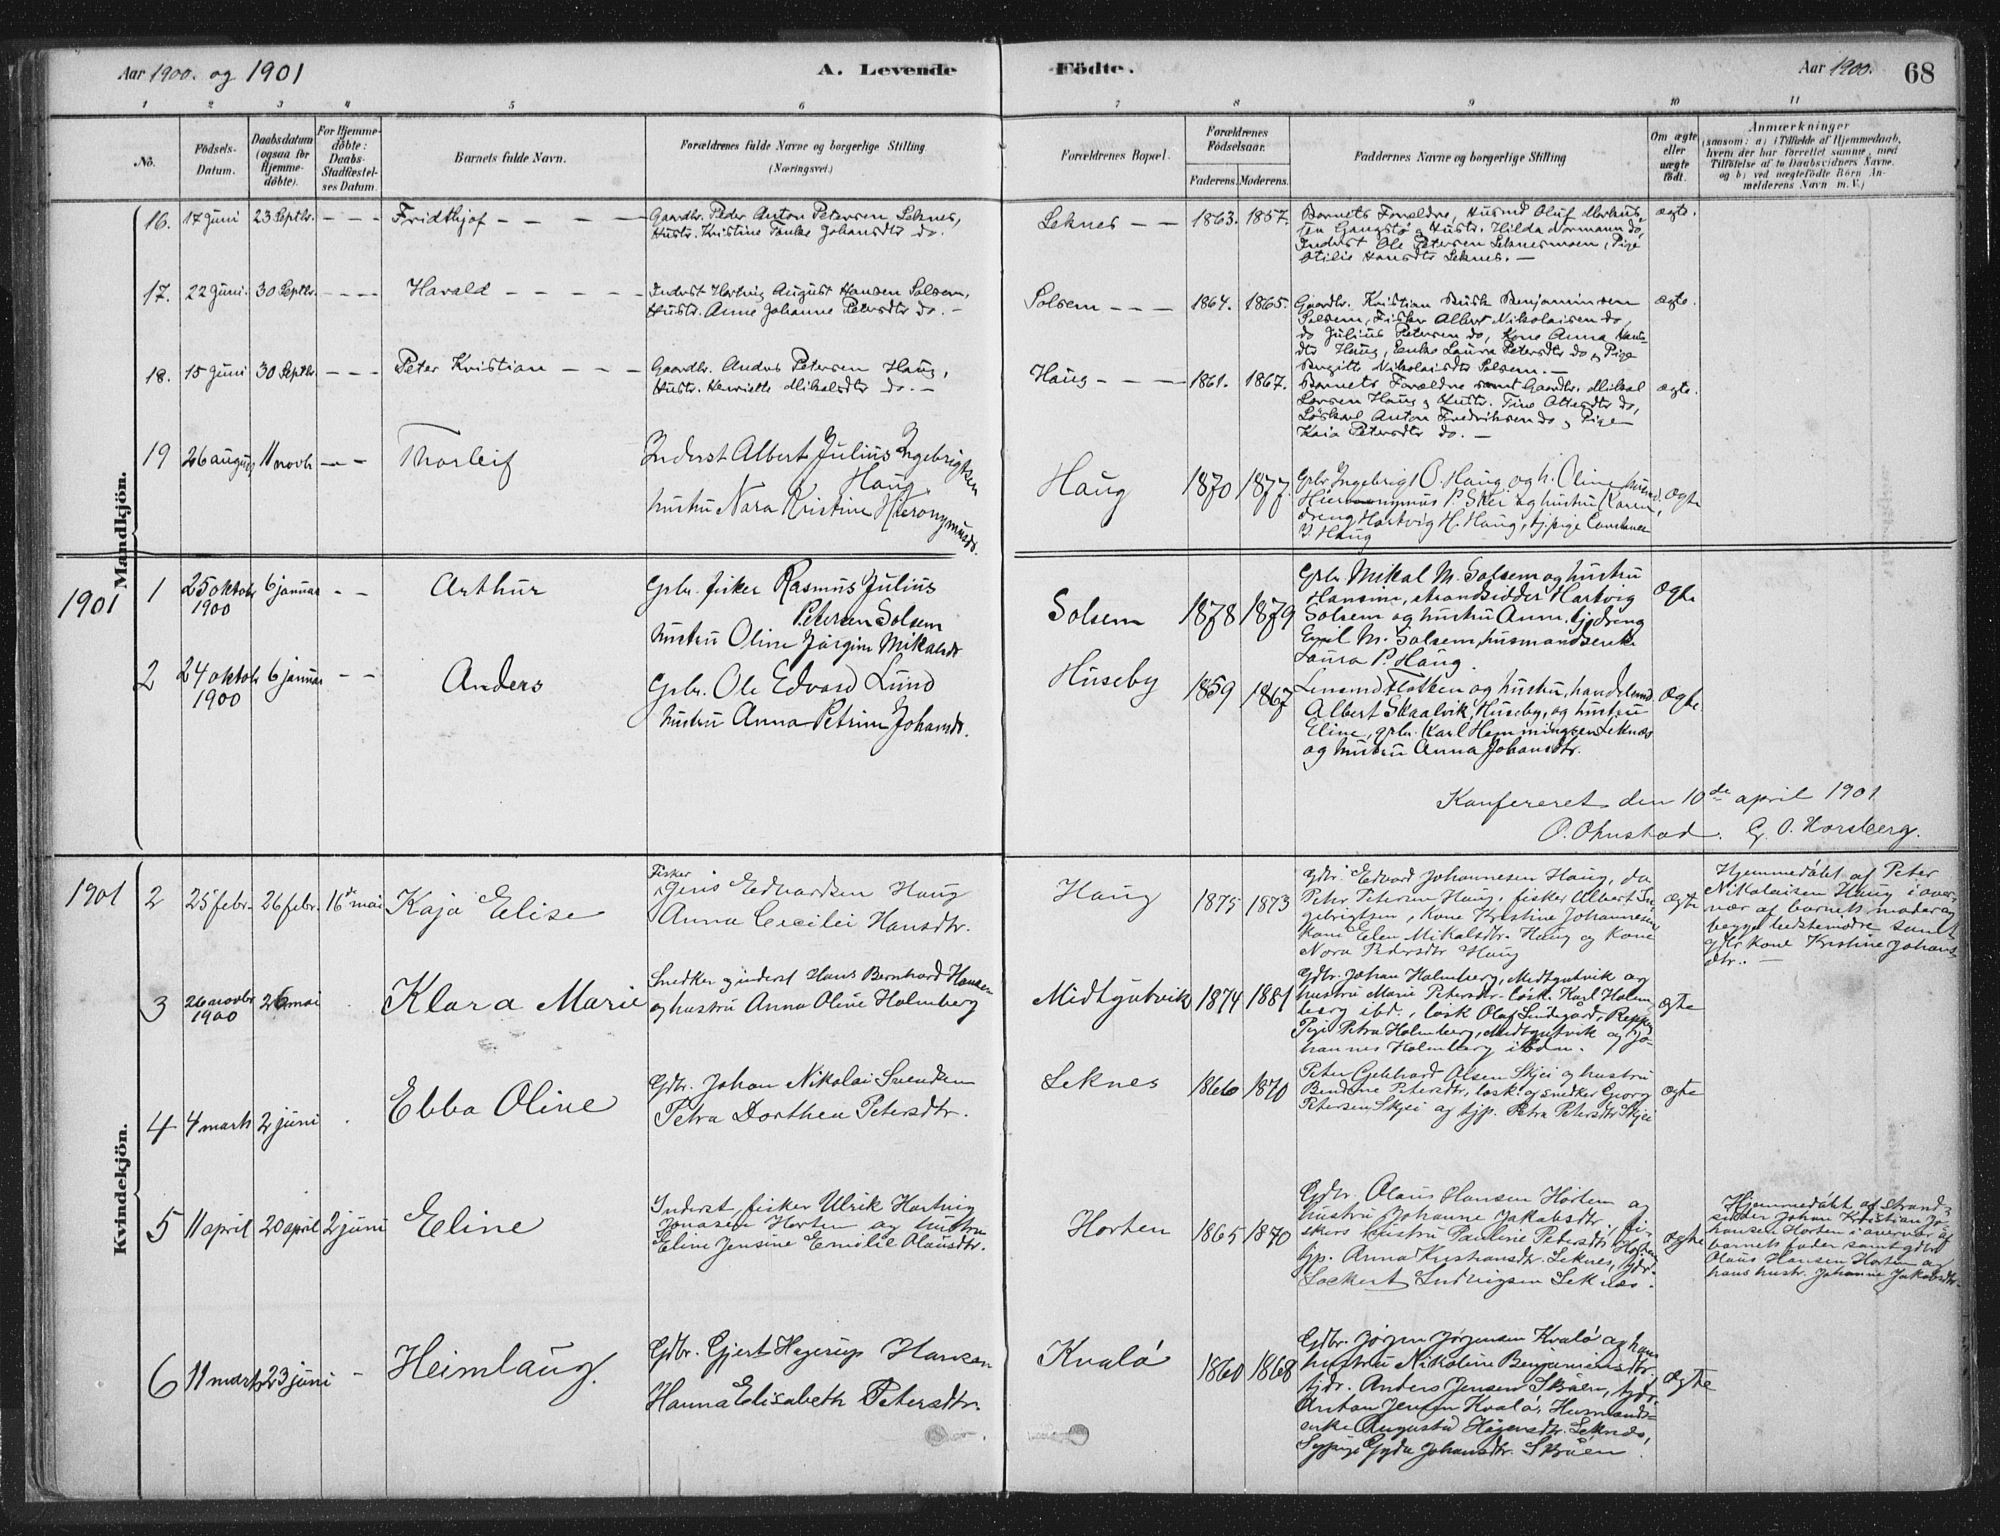 Aar 1900. og 1901
A. Levende
Födte.
Aar 1900.
68
1 2 3 4 5 6 7 8 9 10 11
No.
Födsels-Datum.
Daabsdatum (ogsaa for Hjemme-döbte).
For Hjemme-döbte: Daabs-Stadfæstel-ses Datum.
Barnets fulde Navn.
Forældrenes fulde Navne og borgerlige Stilling
(Næringsvei.)
Forældrenes Bopæl.
Forældrenes Födselsaar.
Faderens. Moderens.
Faddernes Navne og borgerlige Stilling
Om ægte eller uægte födt.
Anmærkninger
(saasom: a) i Tilfælde af Hjemmedaab,
hvem der har forrettet samme, med
Tilföielse af to Daabsvidners Navne,
og b) ved uægtefödte Börn An-
melderens Navn m. V.)
Mandkjön.
16. 17 Juni 23 Septbr. - - - Fridthjof - - - -
Gaardbr. Peder Anton Petersen Leknes,
Hustr. Kristine Tanke Johansdtr do.
Leknes - - 1863. 1857.
Barnets Forældre, Husmd Oluf Markus-
sen Gangstø og Hustr. Hilda Normann do,
Inderst Ole Petersen Leknesmoen, Pige
Otilie Hansdtr Leknes. -
ægte.
17. 22 Juni. 30 Septbr. - - - Harald - - - -
Inderst Hartvig August Hansen Solsem,
Hustr. Anne Johanne Petersdtr do. -
Solsem - - - 1864. 1865.
Gaardbr. Kristian Busk Benjaminsen
Solsem, Fisker Albert Nikolaisen do,
do Julius Petersen do, Kone Anna Hans-
dtr Haug, Enke Laura Petersdtr do, Pige
Birgitte Nikolaisdtr Solsem. -
ægte.
18. 15 Juni 30 Septbr. - - - Peter Kristian - - -
Gaardbr. Andreas Petersen Haug,
Hustr. Henriette Mikalsdtr do. -
Haug - - - 1861. 1867.
Barnets Forældre samt Gaardbr. Mikal
Larsen Haug og Hustr. Tine Ottersdtr do,
Løskarl Anton Fredriksen do og Pige
Kaia Petersdtr do. -
ægte.
19 26 august 11 novbr - - Thorleif
Inderst Albert Julius Ingebrigtsen
Haug
hustru Nora Kristine Hieronymusdr.
Haug 1870 1877.
Gbr Ingebrigt O. Haug og h. Oline,
Hieronymus P. Skei og hustru Karen,
dreng Hartvig H. Haug, tj.pige
I. Haug
ægte
1901
1 25 oktobr 1900 6 januar - - Arthur
Gbr. fisker Rasmus Julius
Petersen Solsem
hustru Oline Jørgine Mikalsdr
Solsem 1878 1879
Gbr Mikal M. Solsem og hustru
Hansine, strandsidder Hartvig
Solsem og hustru Anne, tjdreng
Emil M. Solsem, husmandsenke
Laura P. Haug.
ægte
2 24 oktobr 1900 6 januar - - Anders
Gbr. Ole Edvard Lund
hustru Anna Petrine Johansdr.
Huseby 1859 1867
Lensmd Flotken og hustru, handelsmd
Albert Skaalvik, Huseby, og hustru
Eline, gbr. Karl Hemmingsen Leknes
og hustru Anna Johansdtr.
ægte
Konfereret den 10de april 1901
O. Ohnstad. G. O. Horsberg.
Kvindekjön.
1901
2 25 febr. 26 febr. 16de mai Kaja Elise
Fisker
Jens Edvardsen Haug
Anna Cecilie Hansdtr.
Haug 1875 1873
Gdbr. Edvard Johannesen Haug, do
Petter Petersen Haug, fisker Albert In-
gebrigtsen, Kone Kristine Johannesen
Kone Elen Mikalsdtr. Haug og Kone
Nora Pedersdtr Haug
ægte
Hjemmedøbt af Peter
Nikolaisen Haug i over-
vær af barnets moder og
begge bedstemødre samt
gbr kone Kristine Johans-
dtr. -
3 26 novbr 1900 26 mai Klara Marie
Snedker og inderst Hans Bernhard Hansen
og hustru Anna Oline Holmberg
Midtgutvik 1874 1881
Gdbr. Johan Holmberg, Midtgutvik og
hustru Marie Petersdtr, løsk. Karl Holm-
berg ibd., løsk Olaf Lindegård, Reppen
Pige Petra Holmberg, Midtgutvik og Jo-
hannes Holmberg ibdm.
ægte
4 4 marts 2 juni Ebba Oline
Gdbr. Johan Nikolai Svendsen
Petra Dorthea Petersdtr.
Leknes 1866 1870
Peter Gebhard Olsen Skjei og hustru
Bendine Petersdtr, løsk. og snedker Georg
Petersen Skjei og tjp. Petra Petersdtr Skjei
ægte
5 11 april 20 april 2 juni Eline
Inderst, fisker Ulrik Hartvig
Jonasen Horten og hustru
Eline Jensine Emilie Olausdtr.
Horten 1865 1870
Gdbr. Olaus Hansen Horten og
hustru Johanne Jakobsdtr, fi-
skers hustru Pauline Petersdtr
tjp. Anna Kristiansdtr. Leknes, gdr.
Lockert Ludvigsen Leknes.
ægte
Hjemmedøbt af Strand-
sidder Johan Kristian Jo-
hansen Horten i overvær af
barnets fader samt gdbr
Olaus Hansen Horten og
hans hustr. Johanne Jakobsdtr.
6 11 marts 23 juni - Heimlaug.
Gdbr. Gjert Hagerup Hansen
Hanna Elisabeth Petersdtr.
Kvalø 1860 1868
Gdbr. Jørgen Jørgensen Kvalø og hans
hustru Nikoline Benjaminsdtr,
tjdr. Anders Jensen Skåen, tjdr.
Anton Jensen Kvalø, Husmands-
enke Augusta Hågensdtr. Leknes,
Sypige Gyda Johansdtr. Skåen.
ægte